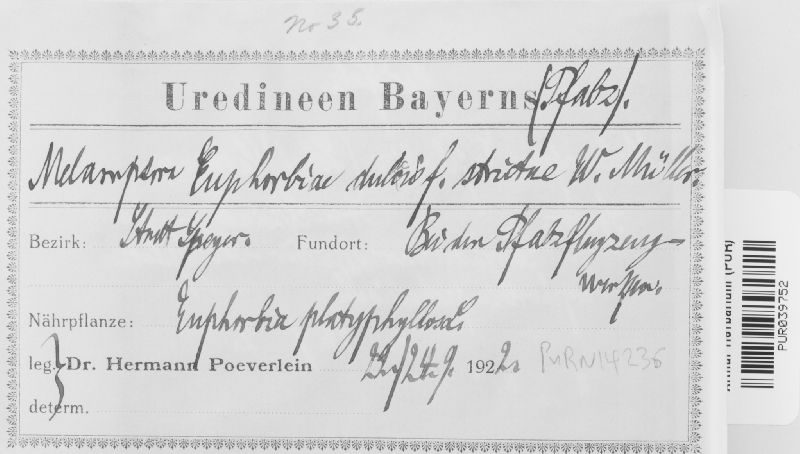 No 35.
Uredineen Bayerns (Pfalz).
Melampsora Euphorbiae dulcis f. strictae W. Müller.
Bezirk: Stadt Speyer. Fundort: Bei den Pfalzflugzeug-
werken.
Nährpflanze: Euphorbia platyphyllos L.
leg. Dr. Hermann Poeverlein 22./24.9. 1922. PURN14236
determ.
Arthur Herbarium (PUR)
PUR039752